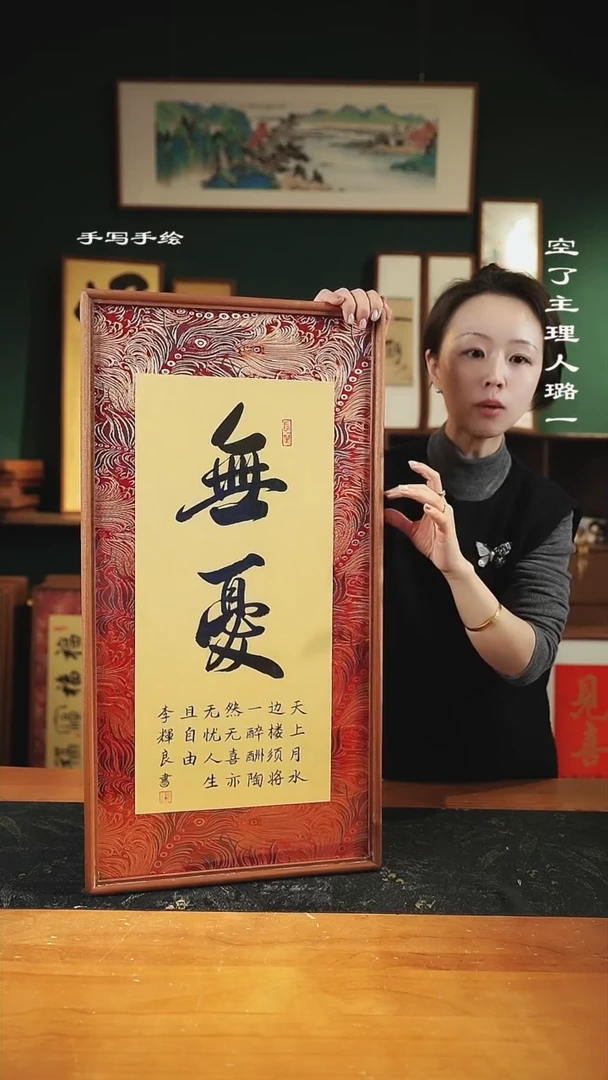 手写手绘
空了主理人璐一
無憂
天上月水
边楼须将
一醉酬陶
然无喜亦
无忧人生
且自由
李輝良書
見喜